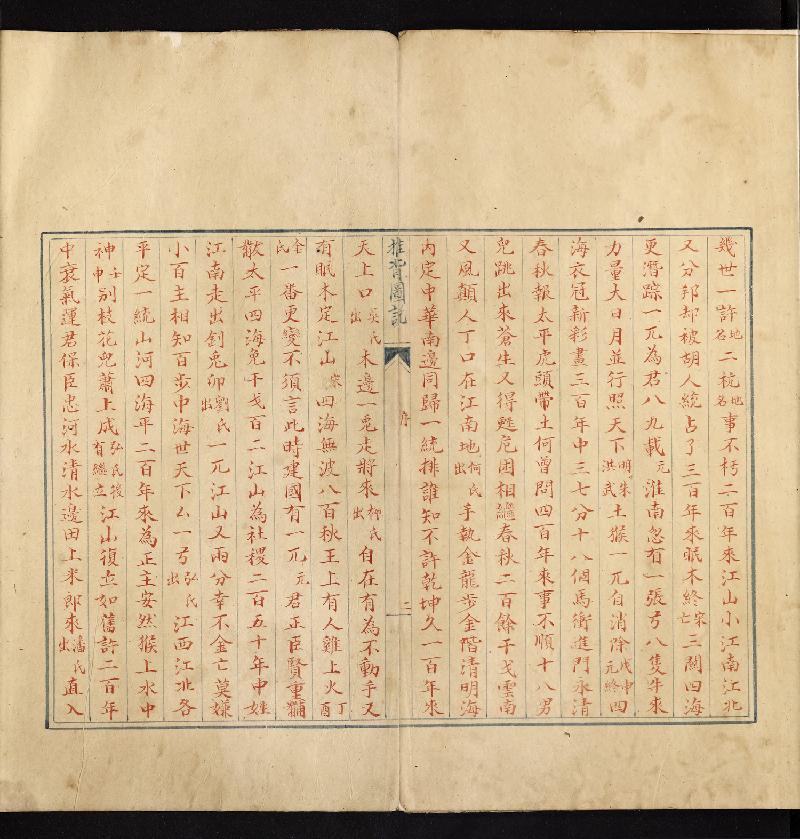 幾世一許地名二杭地名事不朽二百年來江山小江南江北
又分邦却被胡人統占了三百年來眠木終宋亡三閧四海
更潛踪一兀為君八九載元淮南忽有一張弓八隻牛來
力量大日月並行照天下明朱洪武土猴一兀自消除戊申元終四
海衣冠新彩畫三百年中三七分十八個馬衝進門永清
春秋報太平虎頭帶土何曾問四百年來事不順十八男
兒跳出來蒼生又得甦危困相繼春秋二百餘干戈雲南
又風顛人丁口在江南地何氏出手執金龍步金階清明海
内定中華南邊同歸一統排誰知不許乾坤久一百年來
推背圖記
序
二
天上口吳氏出木邊一兎走將來柳氏出自在有為不動手又
有眠木定江山宋四海無波八百秋王上有人雞上火丁酉
金氏一番更變不須言此時建國有一兀元君正臣賢重輔
猷太平四海免干戈百二江山為社稷二百五十年中姓
江南走出釗兎卯劉氏出一兀江山又兩分幸不金亡莫嫌
小百主相知百步中海世天下厶一弓弘氏出江西江北各
平定一統山河四海平二百年來為正主安然猴上水中
神壬申別枝花兒蕭上成弘氏後有繼立江山復立如舊許二百年
中衰氣運君保臣忠河水清水邊田上米郎來潘氏出直入